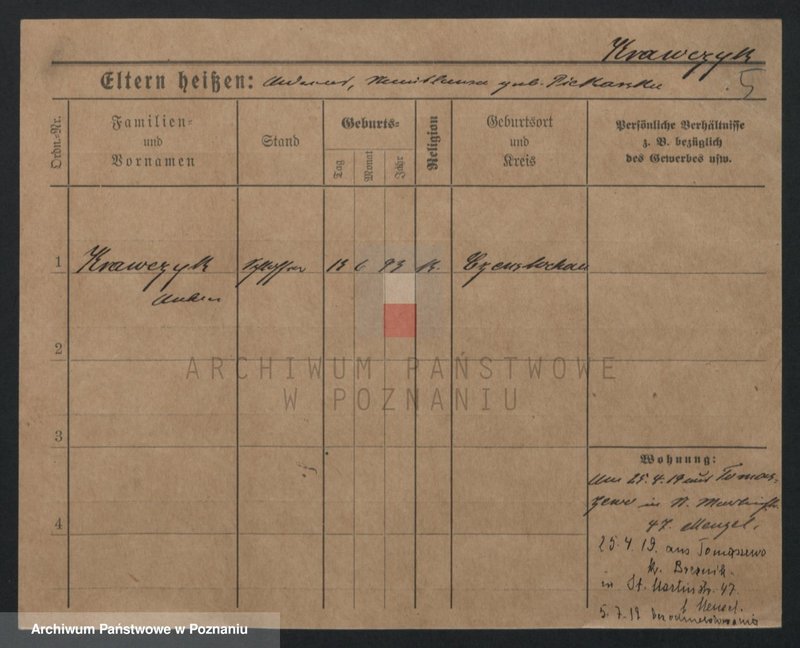 Krawczyk
Eltern heißen: geb. Piekarska
5
Ordn.-Nr.
Familien-
und
Vornamen
Stand
Geburts-
Tag
Monat
Jahr
Religion
Geburtsort
und
Kreis
Persönliche Verhältnisse
z. B. bezüglich
des Gewerbes usw.
1
Krawczyk Schlosser 13 6 93 K. Czenstochau
2
ARCHIWUM PAŃSTWOWE
W POZNANIU
3
Wohnung:
25.4.19 aus Tomas-
zewo in St. Martinstr.
47. Menzel.
4
25.4.19. aus Tomaszewo
in St. Martinstr. 47.
5.7.19 bez odmeldowania
Archiwum Państwowe w Poznaniu